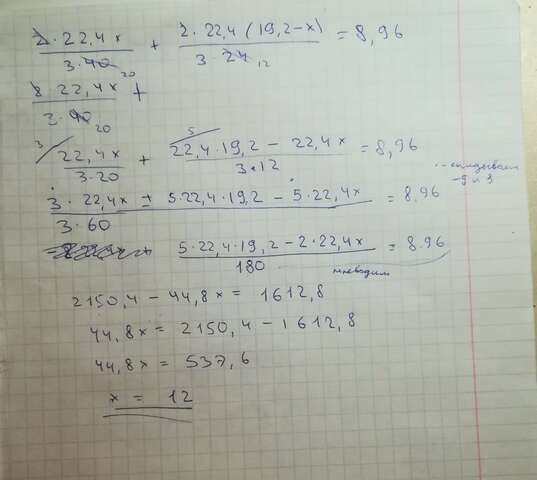 2 · 22,4x / 3 · 40 20 + 2 · 22,4 (19,2 - x) / 3 · 24 12 = 8,96
8 22,4x / 3 · 40 20 +
3 22,4x / 3 · 20 + 5 22,4 · 19,2 - 22,4x / 3 · 12 = 8,96
-5 и 3
3 · 22,4x + 5 · 22,4 · 19,2 - 5 · 22,4x / 3 · 60 = 8.96
= 5 · 22,4 · 19,2 - 2 · 22,4x / 180 = 8.96
2150,4 - 44,8x = 1612,8
44,8x = 2150,4 - 1612,8
44,8x = 537,6
x = 12